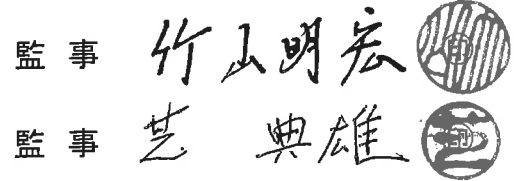 監事 竹山明宏 印
監事 芝 典雄 印